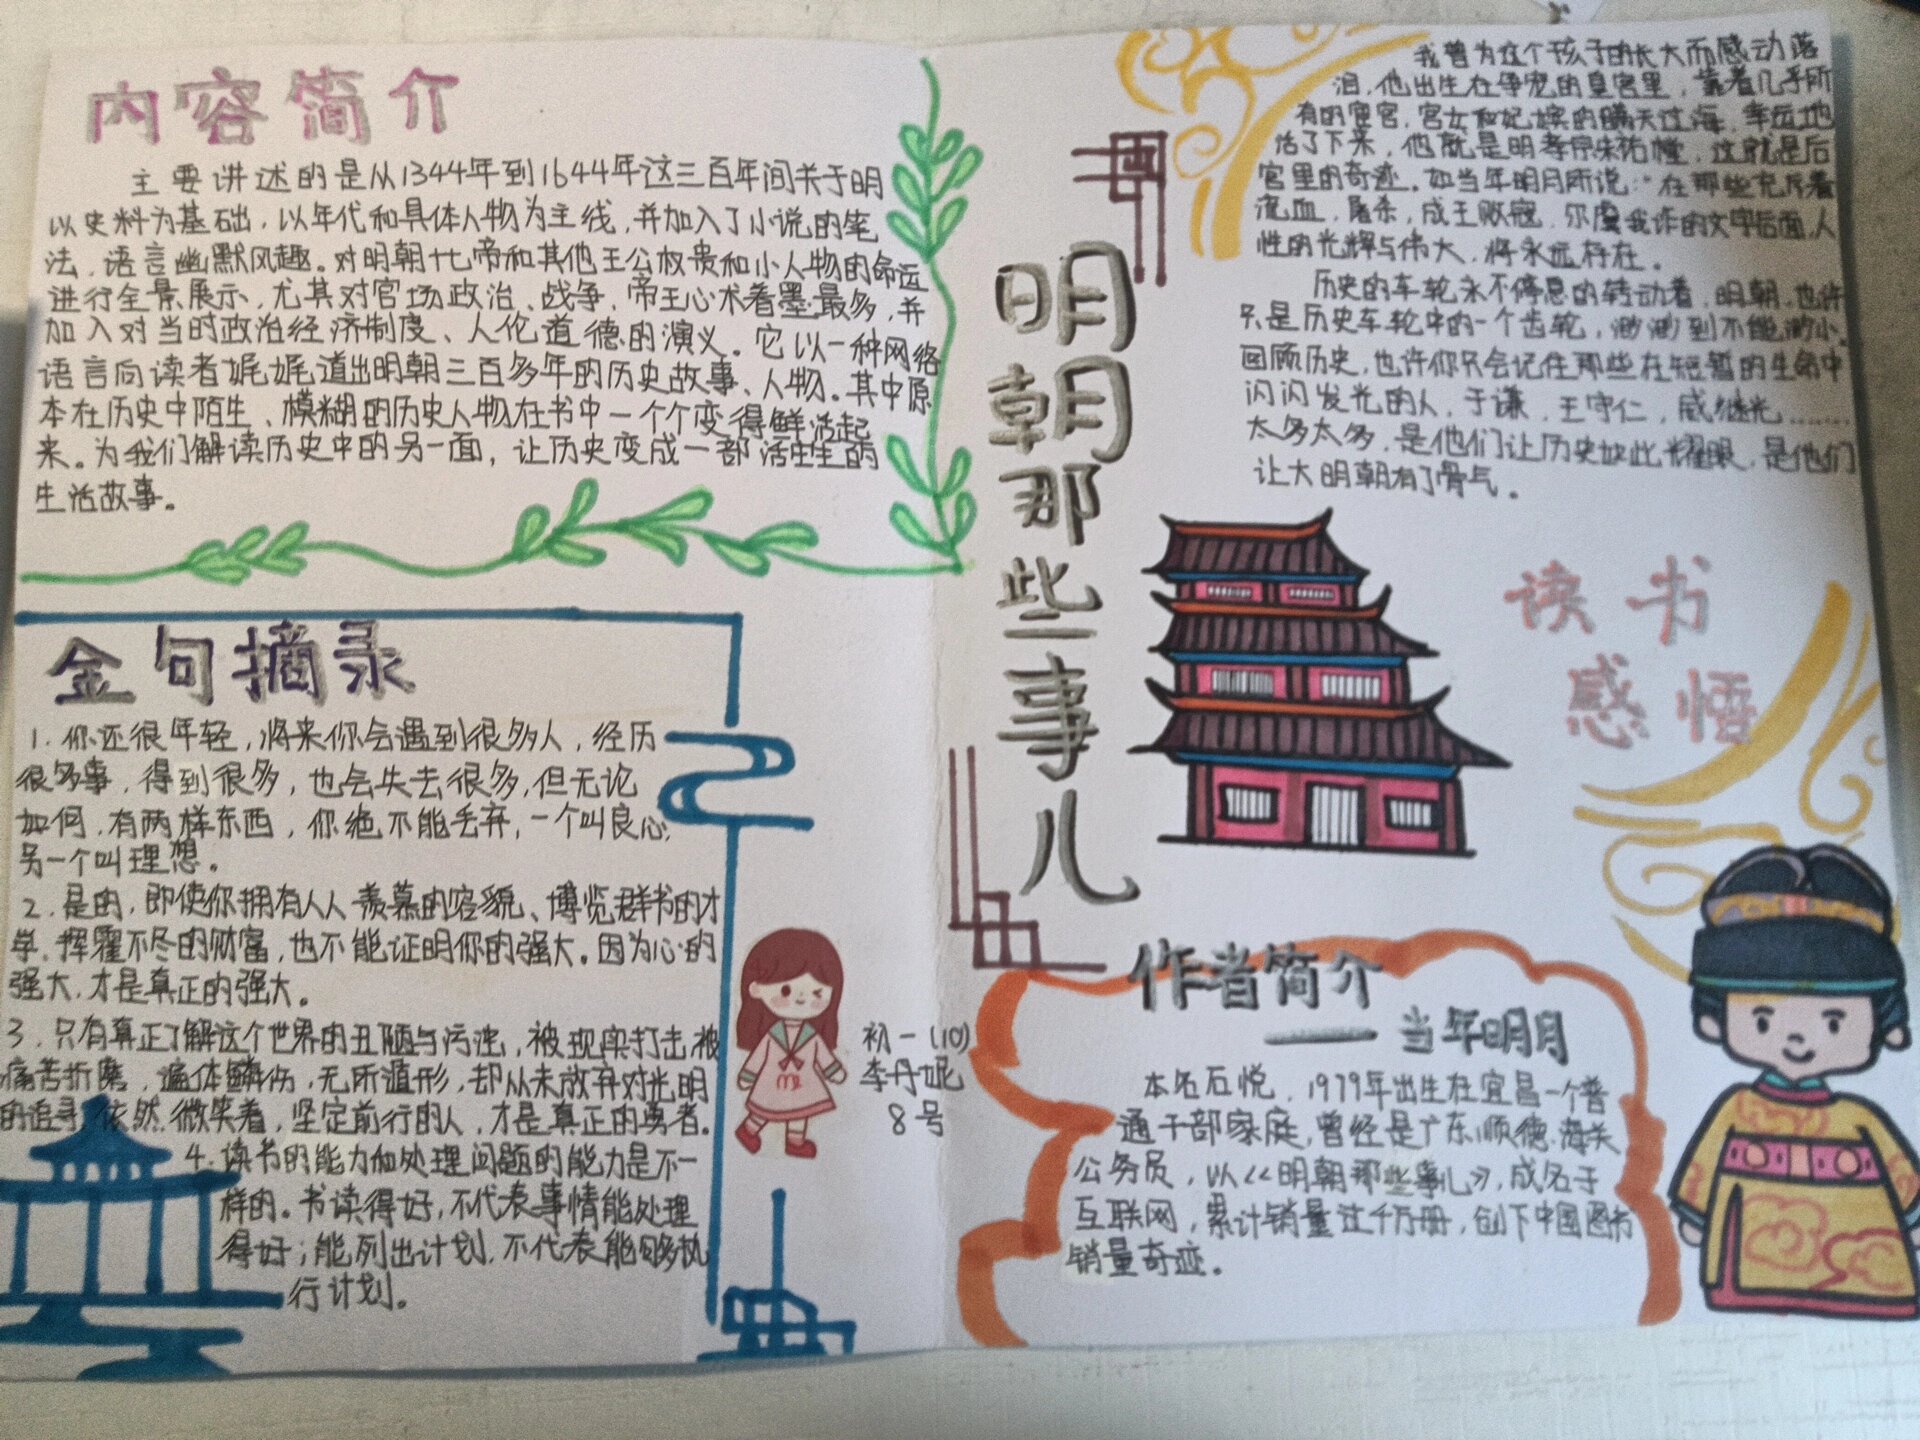 内容简介
主要讲述的是从1344年到1644年这三百年间关于明
以史料为基础，以年代和具体人物为主线，并加入了小说的笔
法，语言幽默风趣。对明朝十七帝和其他王公权贵和小人物的命运
进行全景展示，尤其对官场政治、战争、帝王心术着墨最多，并
加入对当时政治经济制度、人伦道德的演义。它以一种网络
语言向读者娓娓道出明朝三百多年的历史故事、人物。其中原
本在历史中陌生、模糊的历史人物在书中一个个变得鲜活起
来。为我们解读历史中的另一面，让历史变成一部活生生的
生活故事。
金句摘录
1.你还很年轻，将来你会遇到很多人，经历
很多事，得到很多，也会失去很多，但无论
如何，有两样东西，你绝不能丢弃，一个叫良心，
另一个叫理想。
2.是的，即使你拥有人人羡慕的容貌、博览群书的才
学，挥霍不尽的财富，也不能证明你的强大。因为心的
强大，才是真正的强大。
3.只有真正了解这个世界的丑陋与污浊，被现实打击，被
痛苦折磨，遍体鳞伤，无所遁形，却从未放弃对光明
的追寻，依然微笑着，坚定前行的人，才是真正的勇者。
4.读书的能力和处理问题的能力是不一
样的。书读得好，不代表事情能处理
得好；能列出计划，不代表能够执
行计划。
初一(10)
李丹妮
8号
明朝那些事儿
我曾为这个孩子的长大而感动落
泪，他出生在争宠的皇宫里，靠着几乎所
有的宦官，宫女和妃嫔的瞒天过海，幸运地
活了下来，他就是明孝宗朱祐樘，这就是后
宫里的奇迹。如当年明月所说：在那些充斥着
流血，屠杀，成王败寇，尔虞我诈的文字后面，人
性的光辉与伟大，将永远存在。
历史的车轮永不停息的转动着，明朝，也许
只是历史车轮中的一个齿轮，渺渺到不能渺小。
回顾历史，也许你只会记住那些在短暂的生命中
闪闪发光的人，于谦，王守仁，戚继光……
太多太多，是他们让历史如此耀眼，是他们
让大明朝有了骨气。
读书
感悟
作者简介
——当年明月
本名石悦，1979年出生在宜昌一个普
通干部家庭，曾经是广东顺德海关
公务员，以<<明朝那些事儿>>，成名于
互联网，累计销量过千万册，创下中国图书
销量奇迹。